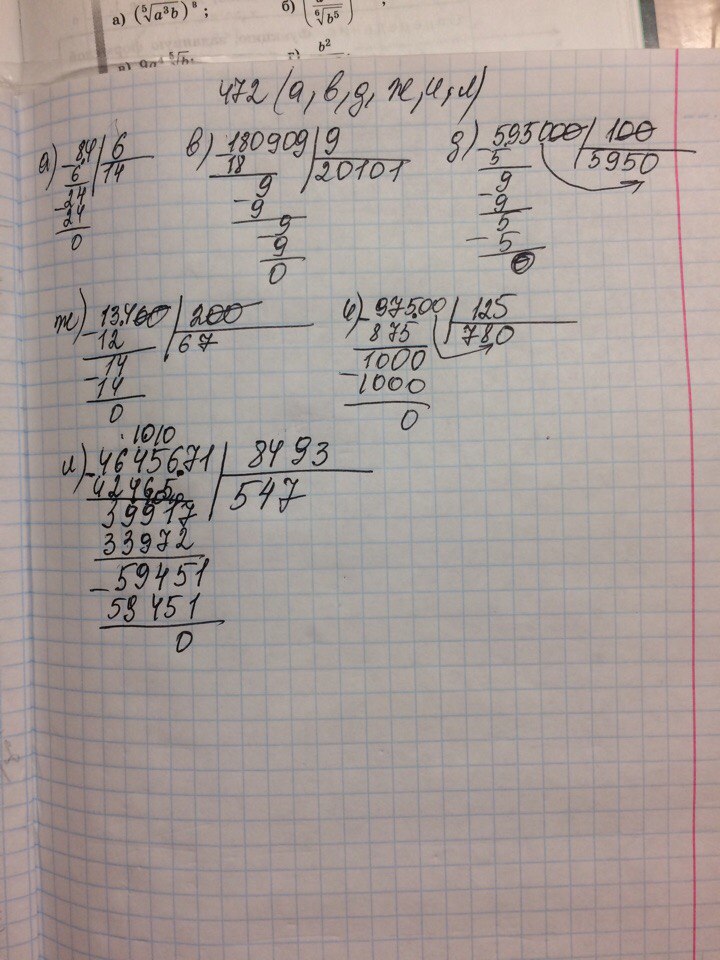 а) (⁵√a³b)⁸ ;
б)
⁶√b⁵
b²
472 (а, в, д, ж, и, л)
а) 84 | 6
6 | 14
24
24
0
в) 180909 | 9
18 | 20101
9
9
9
9
0
д) 595000 | 100
5 | 5950
9
9
5
5
0
ж) 13400 | 200
12 | 67
14
14
0
и) 97500 | 125
875 | 780
1000
1000
0
1010
л) 4645671 | 8493
42465 | 547
39917
33972
59451
59451
0